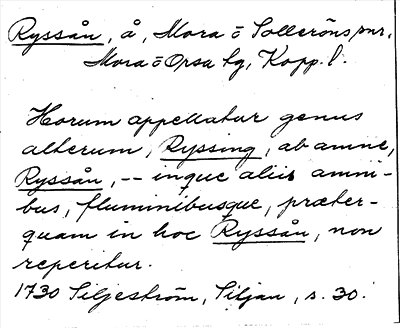 Ryssån, å, Mora o Solleröns snr,
Mora o Orsa tg, Kopp. l.
Horum appellatur genus
alterum, Ryssing, ab amne,
Ryssån, -- inque aliis amni-
bus, fluminibusque, præter-
quam in hoc Ryssån, non
reperitur.
1730 Siljeström, Siljan, s. 30.